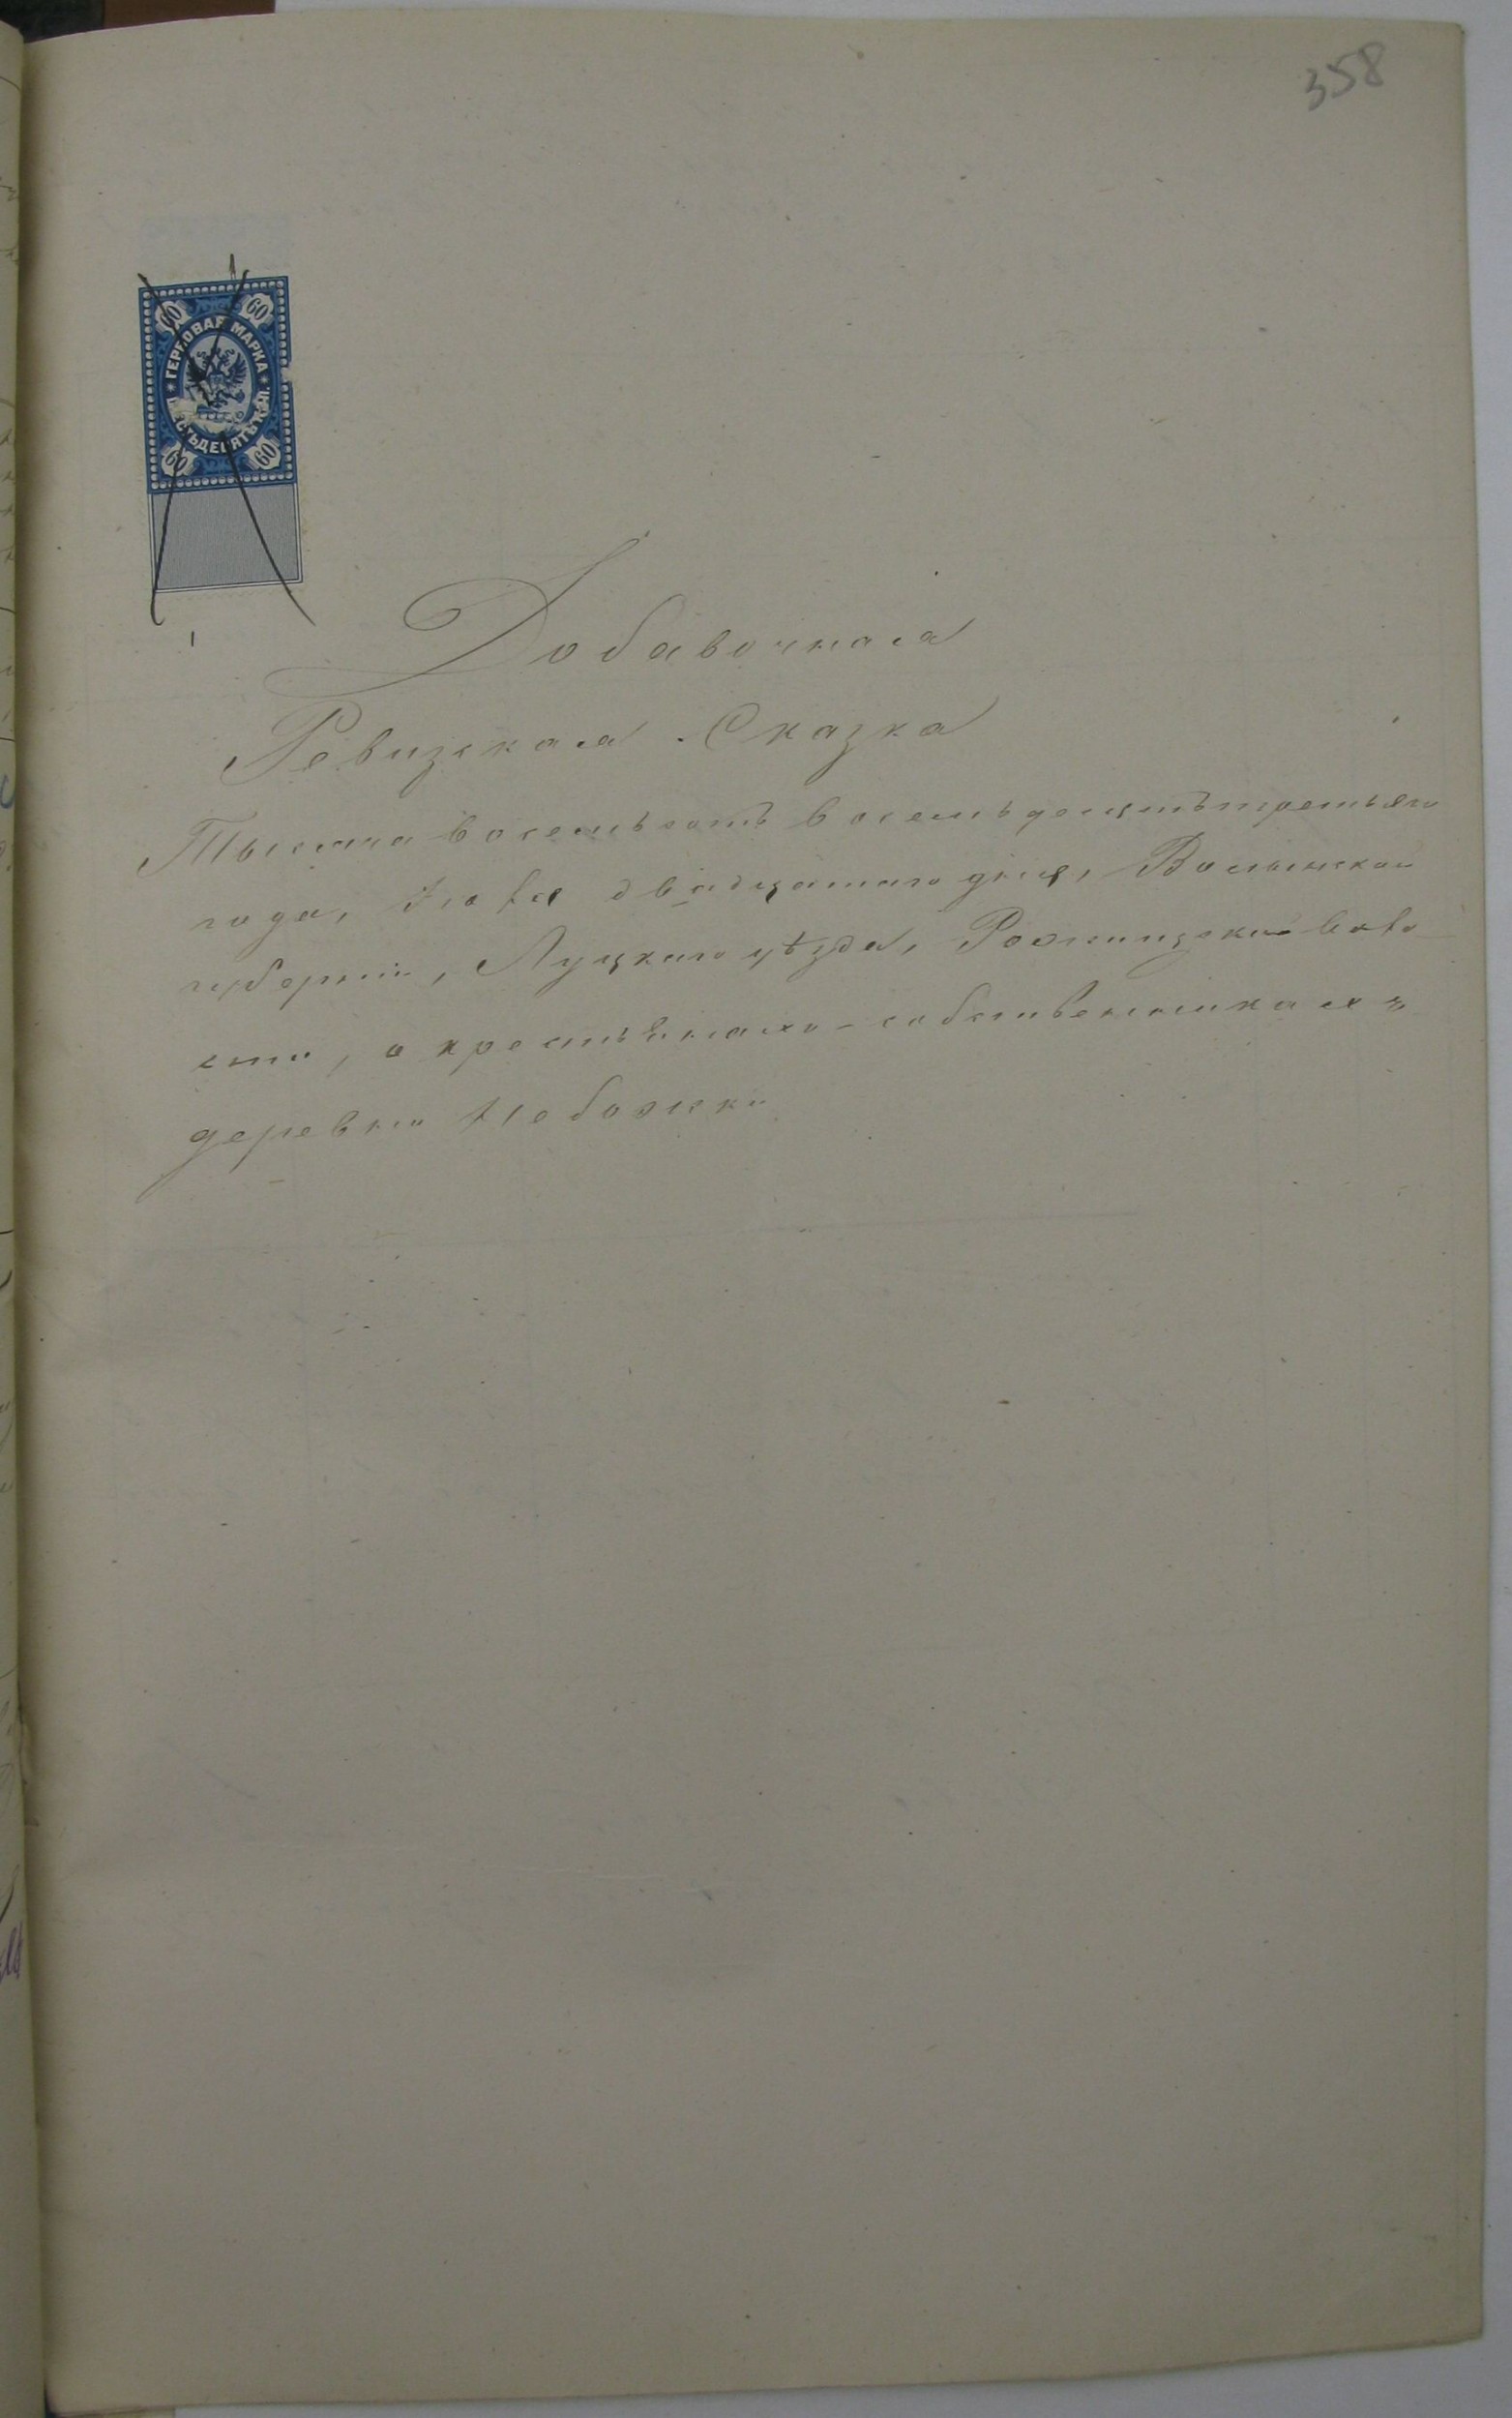 358
60 60
ГЕРБОВАЯ МАРКА
ШЕСТЬДЕСЯТЪ КОП.
60 60
Добавочная
Ревизская Сказка
Тысяча восемьсотъ восемьдесятътретьяго
года, двадцатаго дня, Волынской
губерніи, Луцкаго уѣзда, Рожищской воло
сти, о крестьянахъ-собственникахъ
деревни Небожки